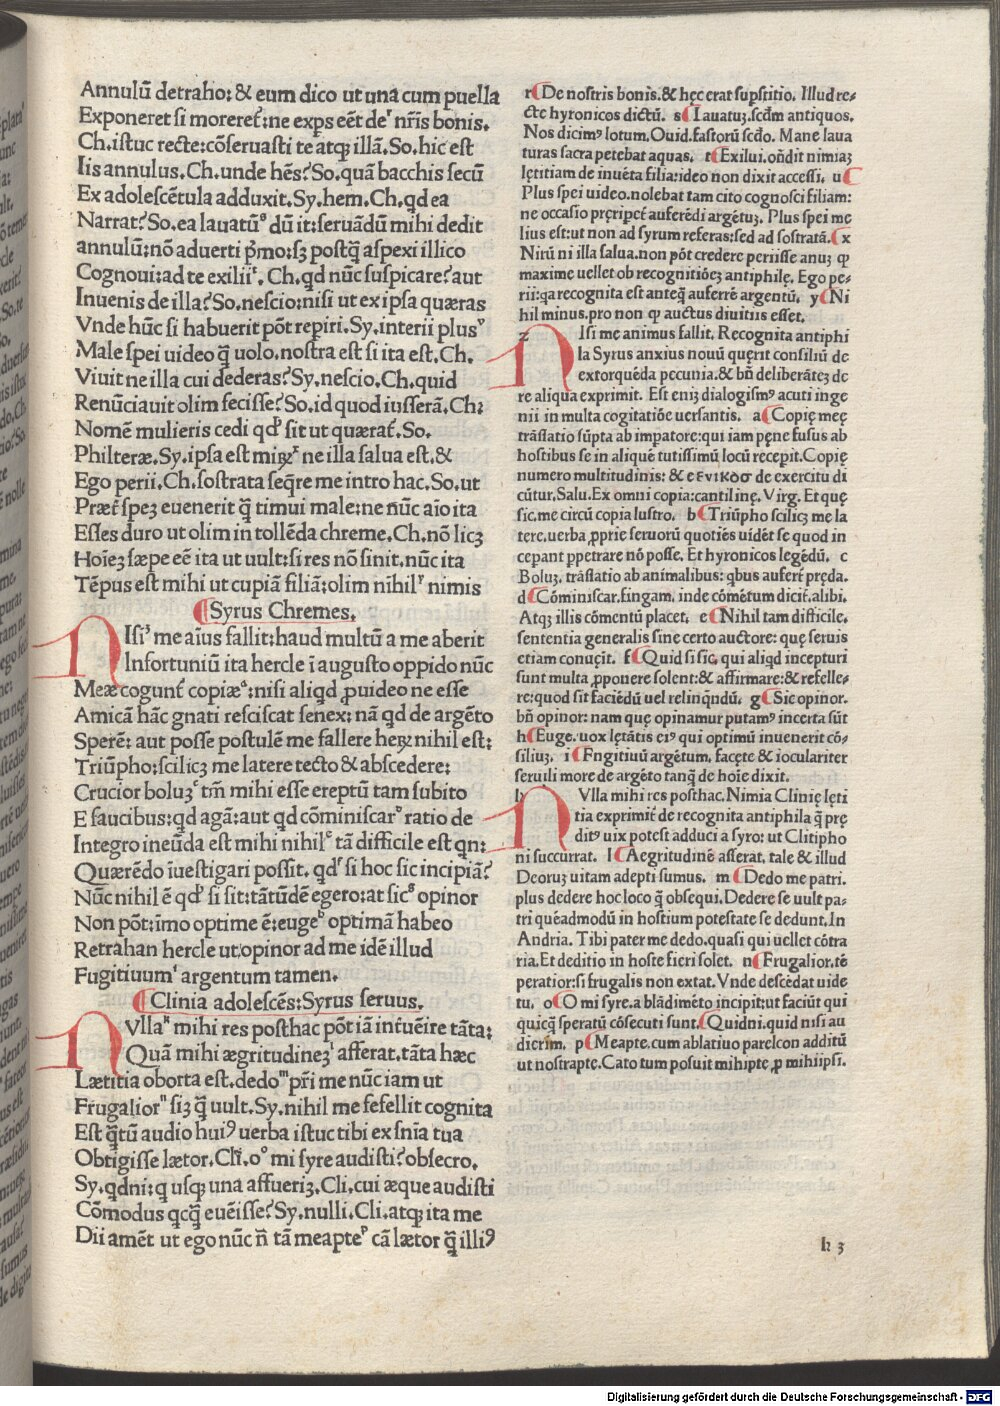 Annulū detraho: & eum dico ut una cum puella
Exponeret si moreret᷑: ne exps eēt de r nr̄is bonis.
Ch. istuc recte: cōseruasti te atq; illā. So. hic est
Iis annulus. Ch. unde hēs? So. quā bacchis secū
Ex adolescētula adduxit. Sy. hem. Ch. qd ea
Narrat? So. ea lauatū s dū it: seruādū mihi dedit
annulū: nō aduerti p̄mo: sꝫ postq̄ aspexi illico
Cognoui: ad te exilii t. Ch. qd nūc suspicare? aut
Inuenis de illa? So. nescio: nisi ut ex ipsa quæras
Vnde hūc si habuerit pōt repiri. Sy. interii plus u
Male spei uideo q̄ uolo. nostra est si ita est. Ch.
Viuit ne illa cui dederas? Sy. nescio. Ch. quid
Renūciauit olim fecisse? So. id quod iusserā. Ch:
Nomē mulieris cedi qd sit ut quærat᷑. So.
Philteræ. Sy. ipsa est mirꝫ x ne illa salua est. &
Ego perii. Ch. sostrata seq̄re me intro hac. So. ut
Præt᷑ speꝫ euenerit q̄ timui male: ne nūc aīo ita
Esses duro ut olim in tollēda chreme. Ch. nō licꝫ
Hoīeꝫ sæpe eē ita ut uult: si res nō sinit. nūc ita
Tēpus est mihi ut cupiā filiā: olim nihil y nimis
Syrus Chremes.
NIsi z me aīus fallit: haud multū a me aberit
Infortuniū ita hercle ī augusto oppido nūc
Meæ cogunt᷑ copiæ a: nisi aliqd ꝓuideo ne esse
Amicā hāc gnati resciscat senex: nā qd de argēto
Sperē: aut posse postulē me fallere heꝝ nihil est:
Triūpho b: scilicꝫ me latere tecto & abscedere:
Crucior boluꝫ c tm̄ mihi esse ereptū tam subito
E faucibus: qd agā: aut qd cōminiscar d ratio de
Integro ineūda est mihi nihil e tā difficile est qn:
Quærēdo īuestigari possit. qd f si hoc sic incipiā?
Nūc nihil ē qd si sit: tātūdē egero: at sic g opinor
Non pōt: īmo optime ē: euge h optimā habeo
Retrahan hercle ut opinor ad me idē illud
Fugitiuum i argentum tamen.
Clinia adolescēs: Syrus seruus.
NVlla k mihi res posthac pōt iā int̄uēire tāta:
Quā mihi ægritudineꝫ l afferat. tāta hæc
Lætitia oborta est. dedo m pr̄i me nūc iam ut
Frugalior n siꝫ q̄ uult. Sy. nihil me fefellit cognita
Est q̄tū audio hui⁹ uerba istuc tibi ex sn̄ia tua
Obtigisse lætor. Cli. o o mi syre audisti? obsecro.
Sy. qdni: q usqꝫ una affueriꝫ. Cli. cui æque audisti
Cōmodus qcq̄ euēisse? Sy. nulli. Cli. atqꝫ ita me
Dii amēt ut ego nūc n̄ tā meapte p cā lætor q̄ illi⁹
r De nostris bonis. & hęc erat supstitio. Illud re-
cte hyronicos dictū. s Lauatuꝫ. scdm antiquos.
Nos dicim⁹ lotum. Ouid. fastorū scdo. Mane laua
turas sacra petebat aquas. t Exilui. on̄dit nimiaꝫ
lętitiam de inuēta filia: ideo non dixit accessi. u
Plus spei uideo. nolebat tam cito cognosci filiam:
ne occasio pręripet᷑ auferēdi argētuꝫ. Plus spei me
lius est: ut non ad syrum referas: sed ad sostratā. x
Nirū ni illa salua. non pōt credere periisse anuꝫ ꝙ
maxime uellet ob recognitiōeꝫ antiphilę. Ego pe-
rii: qa recognita est anteq̄ auferre argentū. y Ni
hil minus. pro non ꝙ auctus diuitiis esset.
z NIsi me animus fallit. Recognita antiphi
la Syrus anxius nouū quęrit consiliū de
extorquēda pecunia. & bn̄ deliberāteꝫ de
re aliqua exprimit. Est eniꝫ dialogism⁹ acuti inge
nii in multa cogitatiōe uersantis. a Copię meę
trāslatio sūpta ab impatore: qui iam pęne fusus ab
hostibus se in aliquē tutissimū locū recepit. Copię
numero multitudinis: & εϝνικοσ de exercitu di
cūtur. Salu. Ex omni copia: cantilinę. Virg. Et quę
sic. me circū copia lustro. b Triūpho scilicꝫ me la
tere. uerba ꝓprie seruorū quoties uidēt se quod in
cepant ꝑpetrare nō posse. Et hyronicos legēdū. c
Boluꝫ. trāslatio ab animalibus: qbus aufert᷑ pręda.
d Cōminiscar. fingam. inde cōmētum dicit᷑. alibi.
Atqꝫ illis cōmentū placet. e Nihil tam difficile.
sententia generalis sine certo auctore: quę seruis
etiam conuęit. f Quid si sic. qui aliqd incepturi
sunt multa ꝓponere solent: & affirmare: & refelle-
re: quod sit faciēdū uel relinqndū. g Sic opinor.
bn̄ opinor: nam quę opinamur putam⁹ incerta sūt
h Euge. uox lętātis ei⁹ qui optimū inuenerit cō-
siliuꝫ. i Fngitiuū argētum. facęte & ioculariter
seruili more de argēto tanq̄ de hoīe dixit.
k NVlla mihi res posthac. Nimia Clinię lęti
tia exprimit᷑ de recognita antiphila q̄ prę
dit⁹ uix potest adduci a syro: ut Clitipho
ni succurrat. l Aegritudinē afferat. tale & illud
Deoruꝫ uitam adepti sumus. m Dedo me patri.
plus dedere hoc loco q̄ obsequi. Dedere se uult pa-
tri quēadmodū in hostium potestate se dedunt. In
Andria. Tibi pater me dedo. quasi qui uellet cōtra
ria. Et deditio in hoste fieri solet. n Frugalior. tē
peratior: si frugalis non extat. Vnde descēdat uide
tu. o O mi syre. a blādimēto incipit: ut faciūt qui
quicq̄ speratū cōsecuti sunt. Quidni. quid nisi au
dierim. p Meapte. cum ablatiuo parelcon additū
ut nostrapte. Cato tum posuit mihipte ꝓ mihiipsi.
h 3
Digitalisierung gefördert durch die Deutsche Forschungsgemeinschaft - DFG